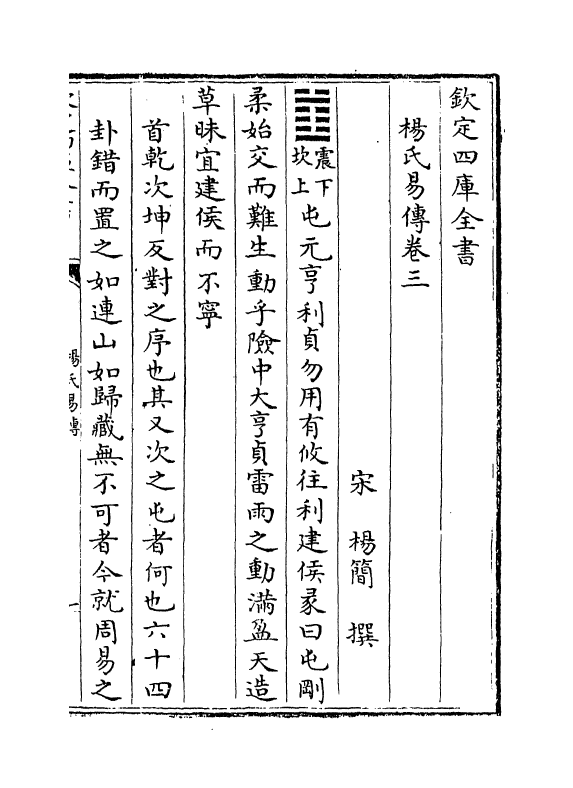 欽定四庫全書
楊氏易傳卷三
宋　楊簡　撰
䷂震下坎上屯元亨利貞勿用有攸往利建侯彖曰屯剛
柔始交而難生動乎險中大亨貞雷雨之動滿盈天造
草昧宜建侯而不寧
首乾次坤反對之序也其又次之屯者何也六十四
卦錯而置之如連山如歸藏無不可者今就周易之
楊氏易傳
一